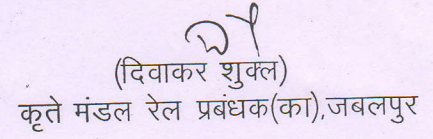 (दिवाकर शुक्ल)
कृते मंडल रेल प्रबंधक(का),जबलपुर